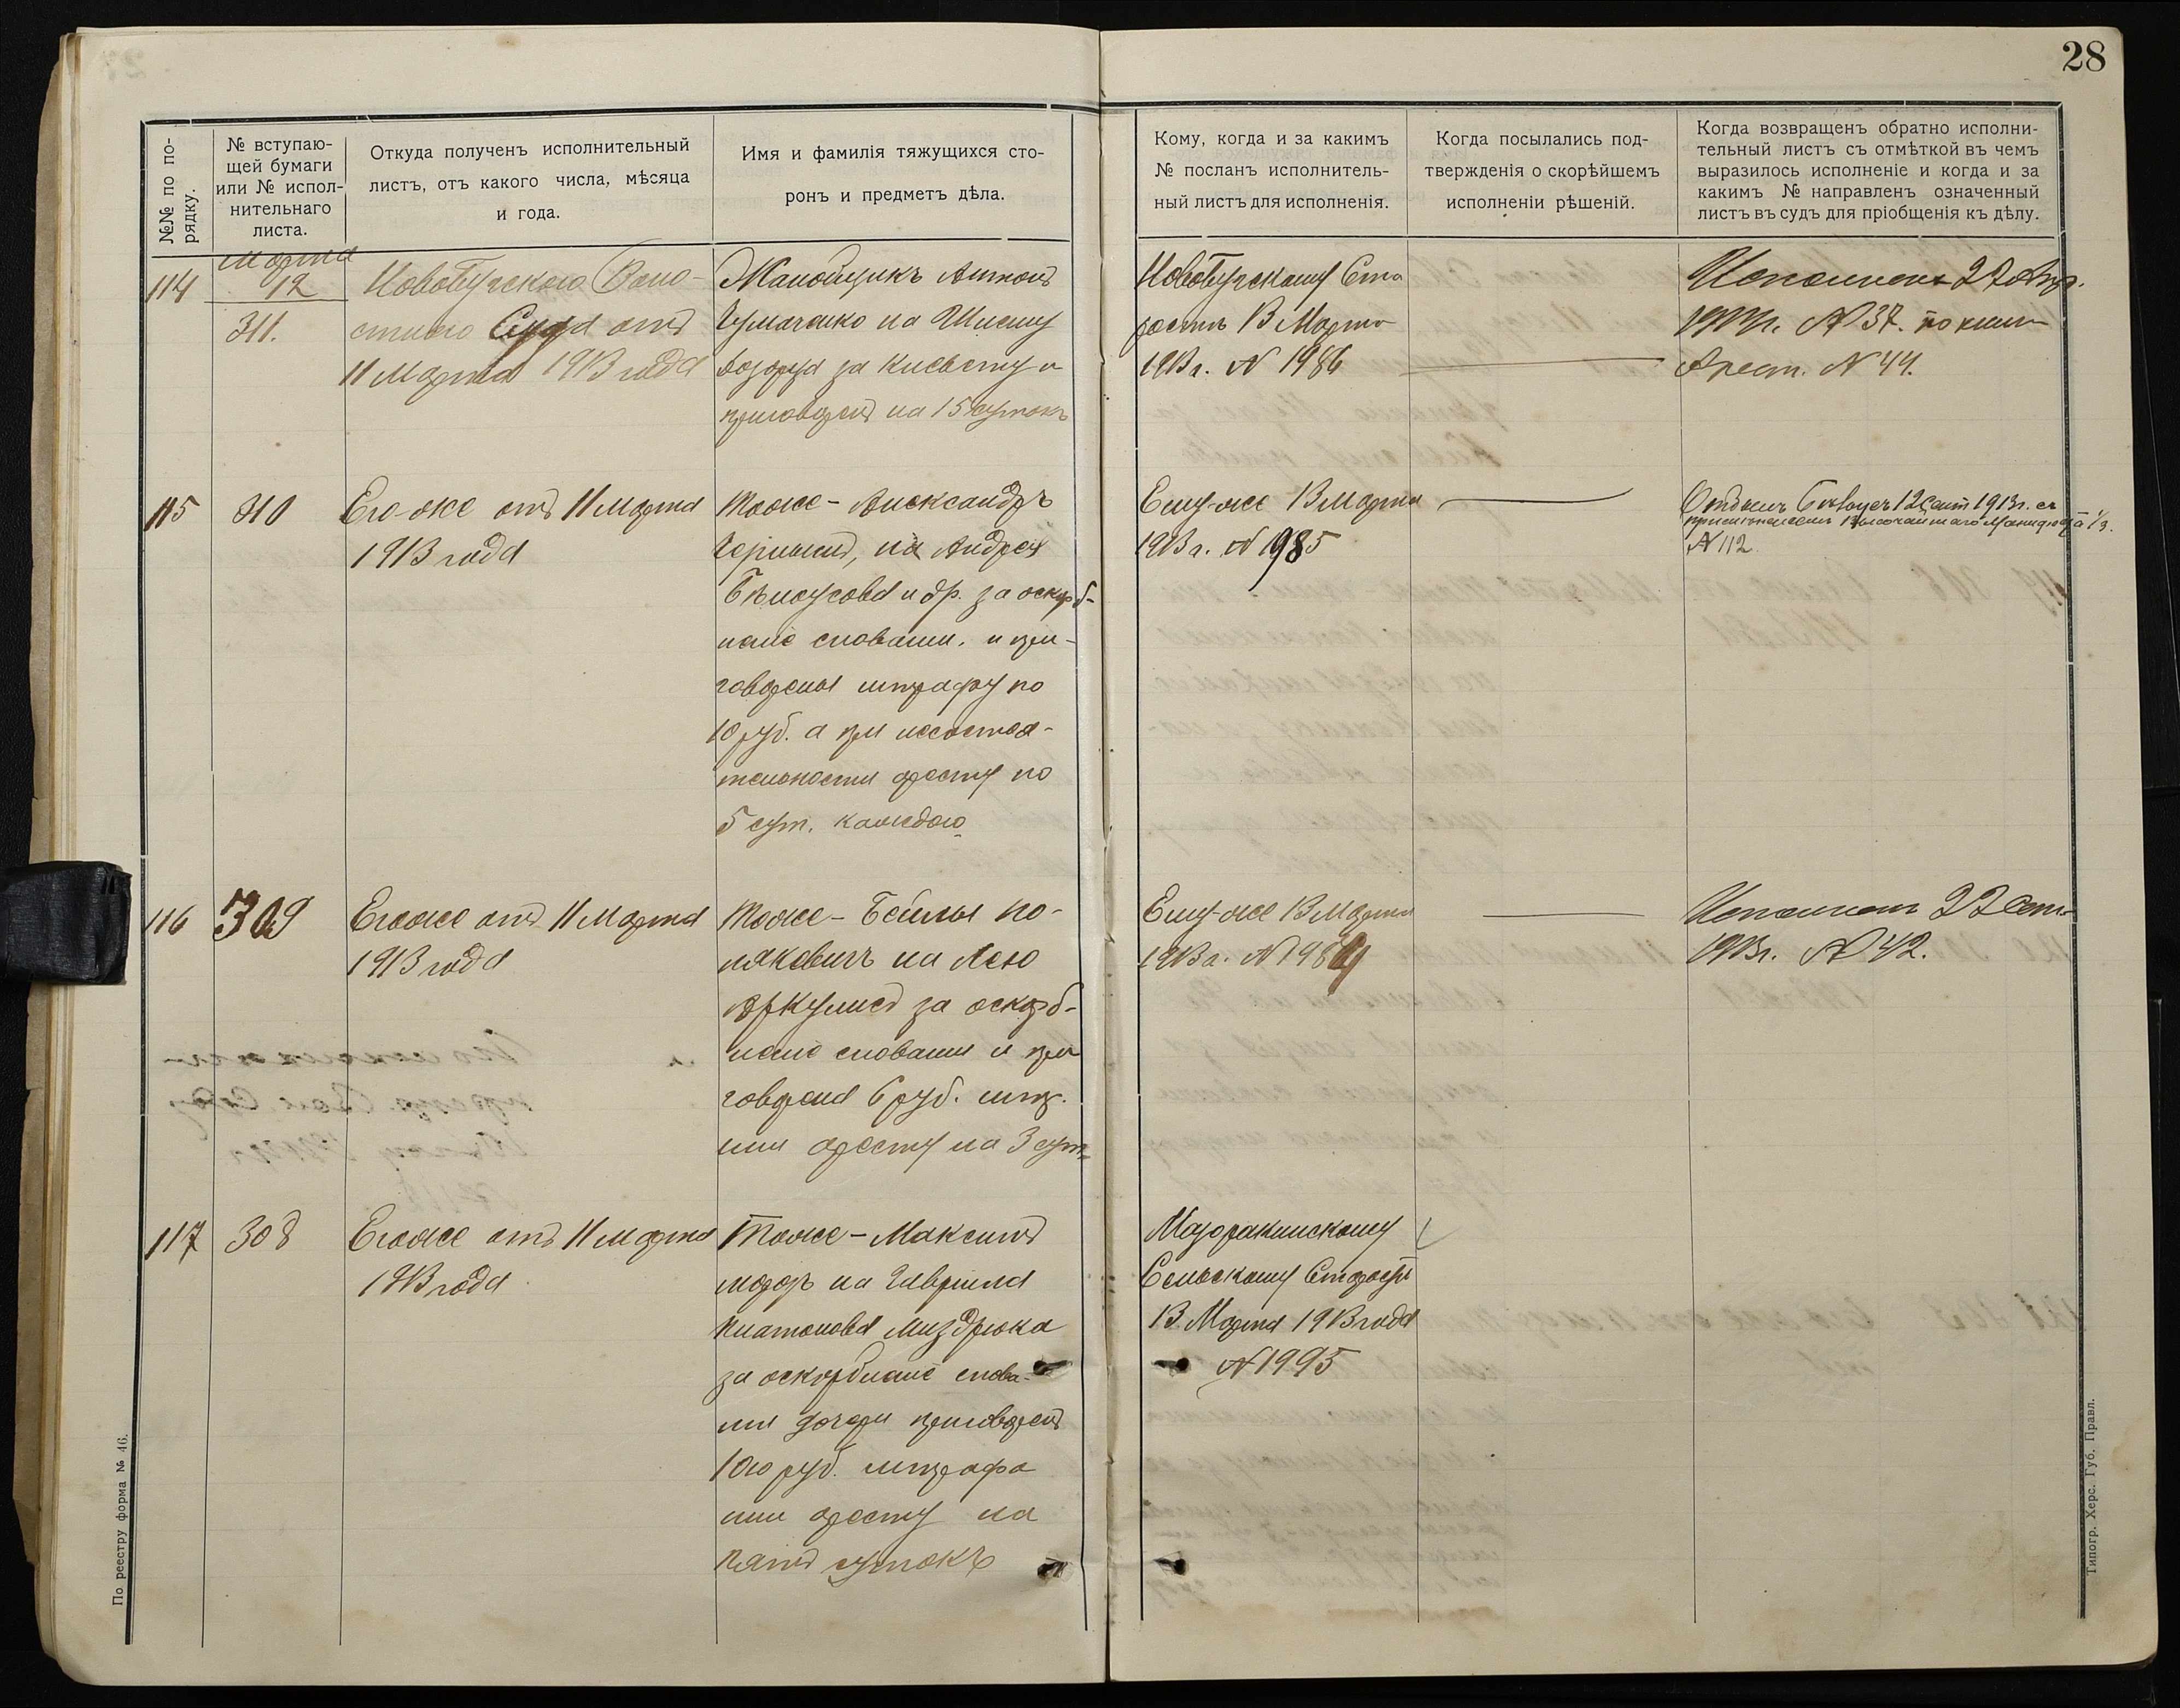 28
№№ по по-
рядку.
№ вступаю-
щей бумаги
или № испол-
нительнаго
листа.
Откуда полученъ исполнительный
листъ, отъ какого числа, мѣсяца
и года.
Имя и фамилія тяжущихся сто-
ронъ и предметъ дѣла.
Кому, когда и за какимъ
№ посланъ исполнитель-
ный листъ для исполненія.
Когда посылались под-
твержденія о скорѣйшемъ
исполненіи рѣшеній.
Когда возвращенъ обратно исполни-
тельный листъ съ отмѣткой въ чемъ
выразилось исполненіе и когда и за
какимъ № направленъ означенный
листъ въ судъ для пріобщенія къ дѣлу.
114
Марта
12
311.
Новобугскаго Воло-
стного Суда отъ
11 Марта 1913 года
Жалобщикъ Антонъ
Чумаченко на
за клевету и
приговоренъ на 15 сутокъ
Новобугскому Ста
ростѣ 13 Марта
1913 г. N 1986
Исполненъ 22
N 37.
Арест. N 44.
115
310
Его-же отъ 11 Марта
1913 года
Тоже - Александръ
на Андрея
Бѣлоусова и др. за оскорб-
леніе словами. и при-
говорены штрафу по
10 руб. а при несостоя-
тельности аресту по
5 сут. каждого
Ему-же 13 Марта
1913 г. N 1985
12 Сент 1913 г. съ
примѣненіемъ Высочайшаго Манифеста
N 112
116
309
Егоже отъ 11 Марта
1913 года
Тоже - Бейлы По-
ляковичъ на Лею
за оскорб-
леніе словами и при
говорена 6 руб. штр.
или аресту на 3 сут.
Ему-же 13 Марта
1913 г. N 1984
Исполненъ 22 Сент
1913 г. N 42.
117
308
Егоже отъ 11 Марта
1913 года
Тоже - Максимъ
на Гаврила
Платонова Миздрюка
за оскорбленіе слова-
ми дочери приговоренъ
10 руб. штрафа
или аресту на
пять сутокъ
Сельскому Старостѣ
13 Марта 1913 года
N 1995
По реестру форма № 46.
Типогр. Херс. Губ. Правл.